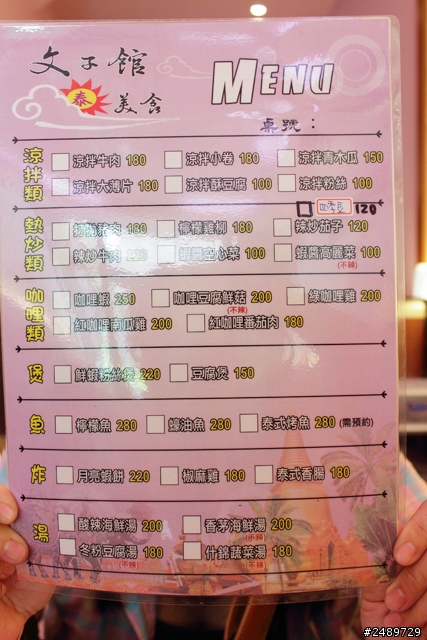 文子館
泰 美食
MENU
桌號：
涼拌類
涼拌牛肉 180 涼拌小卷 180 涼拌青木瓜 150
涼拌大薄片 180 涼拌酥豆腐 100 涼拌粉絲 100
四季豆 120
熱炒類
打拋豬肉 180 檸檬雞柳 180 辣炒茄子 120
辣炒牛肉 220 蝦醬空心菜 100 蝦醬高麗菜 100
(不辣)
咖哩類
咖哩蝦 250 咖哩豆腐鮮菇 200 綠咖哩雞 200
(不辣)
紅咖哩南瓜雞 200 紅咖哩番茄肉 180
煲
鮮蝦粉絲煲 220 豆腐煲 150
魚
檸檬魚 280 蠔油魚 280 泰式烤魚 280 (需預約)
炸
月亮蝦餅 220 椒麻雞 180 泰式香腸 180
湯
酸辣海鮮湯 200 香茅海鮮湯 200
(不辣)
冬粉豆腐湯 180 什錦蔬菜湯 180
(不辣) (不辣)
#2489729